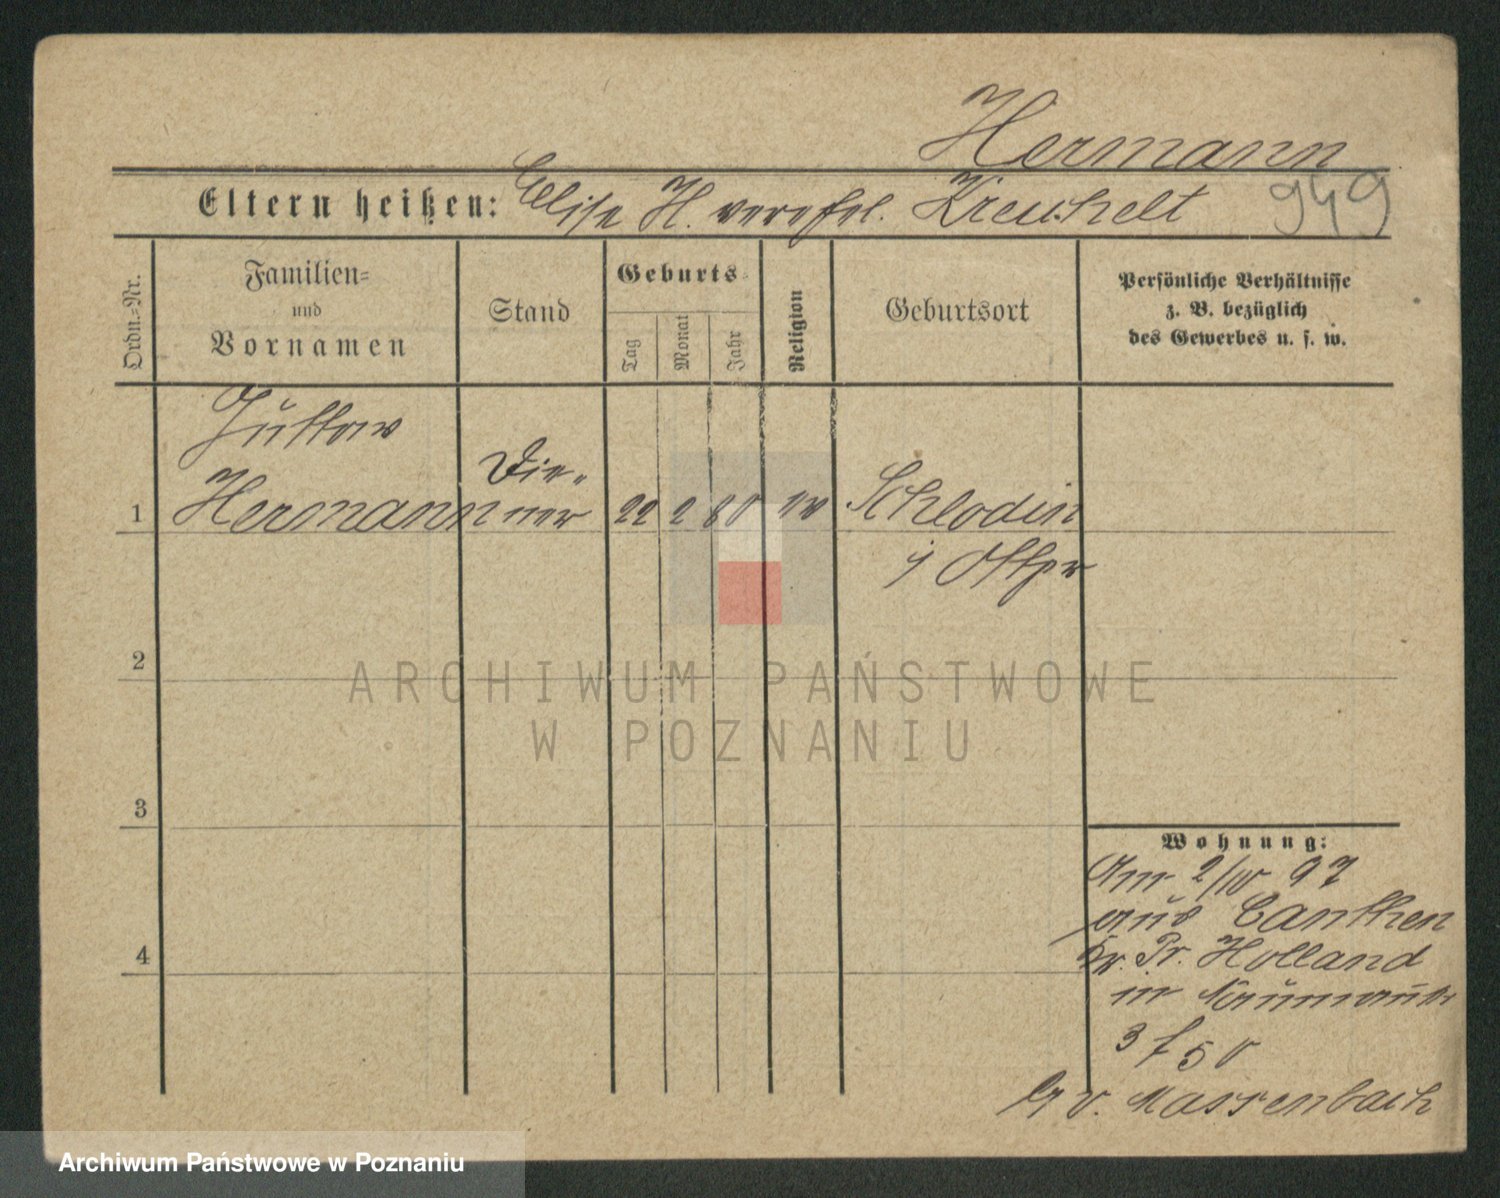 Hermann
949
Eltern heißen: Elise H. verehel. Kreuchelt
Ordn.=Nr.
Familien=
und
Vornamen
Stand
Geburts=
Tag
Monat
Jahr
Religion
Geburtsort
Persönliche Verhältnisse
z. B. bezüglich
des Gewerbes u. s. w.
Gustav
1 Hermann Die-
ner 22 2 80 ev Schlodin
i Ostpr
2
3
4
Wohnung:
Am 2/IV 97
aus Canthen
Kr. Pr. Holland
in Naumannstr
3 f 50
v. Massenbach
ARCHIWUM PAŃSTWOWE
W POZNANIU
Archiwum Państwowe w Poznaniu